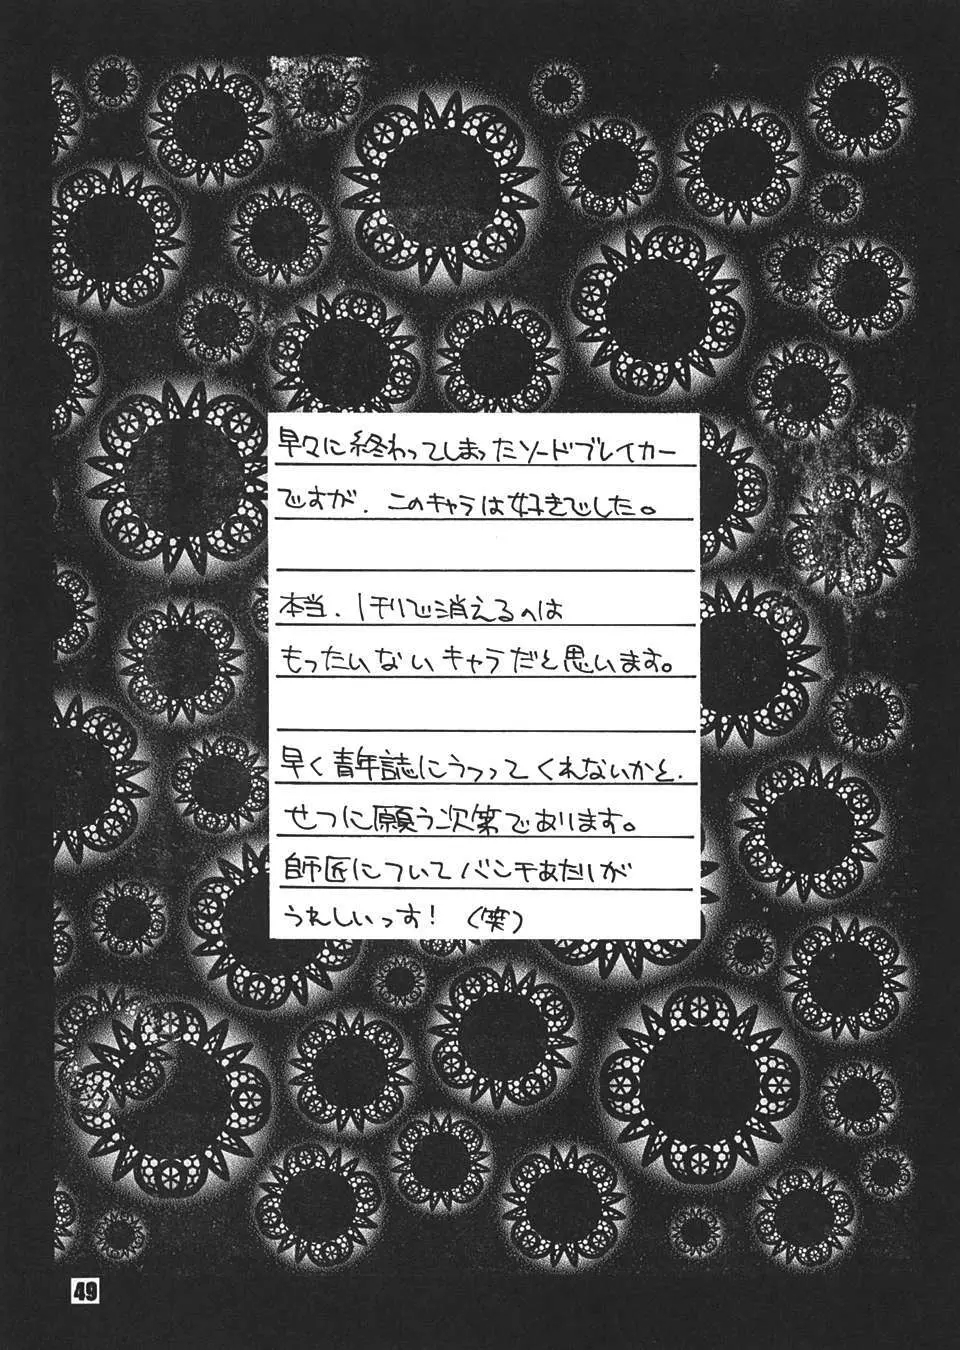 早々に終わってしまったソードブレイカー
ですが、このキャラは好きでした。
本当、1刊で消えるのは
もったいないキャラだと思います。
早く青年誌にうつってくれないかと、
せつに願う次第であります。
師匠についてバンチあたりが
うれしいっす!(笑)
49